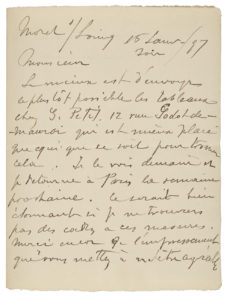 Moret s/Loing 15 Janv/97
Soir
Monsieur
Le mieux est d'envoyer
le plus tôt possible les tableaux
chez G. Petit, 12 rue Godot de
Mauroi qui est mieux placé
que qui que ce soit pour
cela. Je le vois demain et
je retourne à Paris la semaine
prochaine. Ce serait bien
étonnant si je ne trouverais
pas des cadres à ces mesures.
Merci encore de l'empressement
que vous mettez à m'être agréable